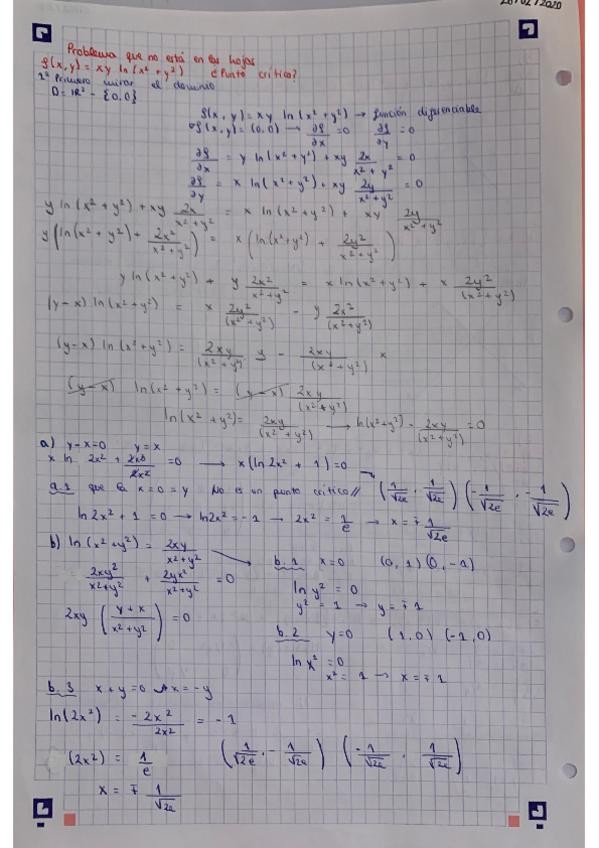 28/02/2020
Problema que no está en las hojas
f(x,y) = xy ln(x² + y²) ¿Punto crítico?
1º Primero mirar el dominio
D = ℝ² - {0,0}
f(x, y) = xy ln(x² + y²) → función diferenciable
∇f(x,y) = (0,0) → ∂f/∂x = 0 ∂f/∂y = 0
∂f/∂x = y ln(x² + y²) + xy 2x/(x² + y²) = 0
∂f/∂y = x ln(x² + y²) + xy 2y/(x² + y²) = 0
y ln(x² + y²) + xy 2x/(x² + y²) = x ln(x² + y²) + xy 2y/(x² + y²)
y(ln(x² + y²) + 2x²/(x² + y²)) = x(ln(x² + y²) + 2y²/(x² + y²))
y ln(x² + y²) + y 2x²/(x² + y²) = x ln(x² + y²) + x 2y²/(x² + y²)
(y-x) ln(x² + y²) = x 2y²/(x² + y²) - y 2x²/(x² + y²)
(y-x) ln(x² + y²) = 2xy/(x² + y²) y - 2xy/(x² + y²) x
(y-x) ln(x² + y²) = (y-x) 2xy/(x² + y²)
ln(x² + y²) = 2xy/(x² + y²) → ln(x² + y²) - 2xy/(x² + y²) = 0
a) y-x=0 y=x
x ln 2x² + 2x³/2x² = 0 → x(ln 2x² + 1) = 0
a.1 que la x = 0 = y No es un punto crítico // (1/√2e, 1/√2e) (-1/√2e, -1/√2e)
ln 2x² + 1 = 0 → ln 2x² = -1 → 2x² = 1/e → x = ∓ 1/√2e
b) ln(x² + y²) = 2xy/(x² + y²)
2xy²/(x² + y²) + 2yx²/(x² + y²) = 0
2xy ((y + x)/(x² + y²)) = 0
b.1 x=0 (0, 1) (0, -1)
ln y² = 0
y² = 1 → y = ∓1
b.2 y=0 (1,0) (-1,0)
ln x² = 0
x² = 1 → x = ∓1
b.3 x+y=0 x = -y
ln(2x²) = -2x²/2x² = -1
(2x²) = 1/e (1/√2e, -1/√2e) (-1/√2e, 1/√2e)
x = ∓ 1/√2e